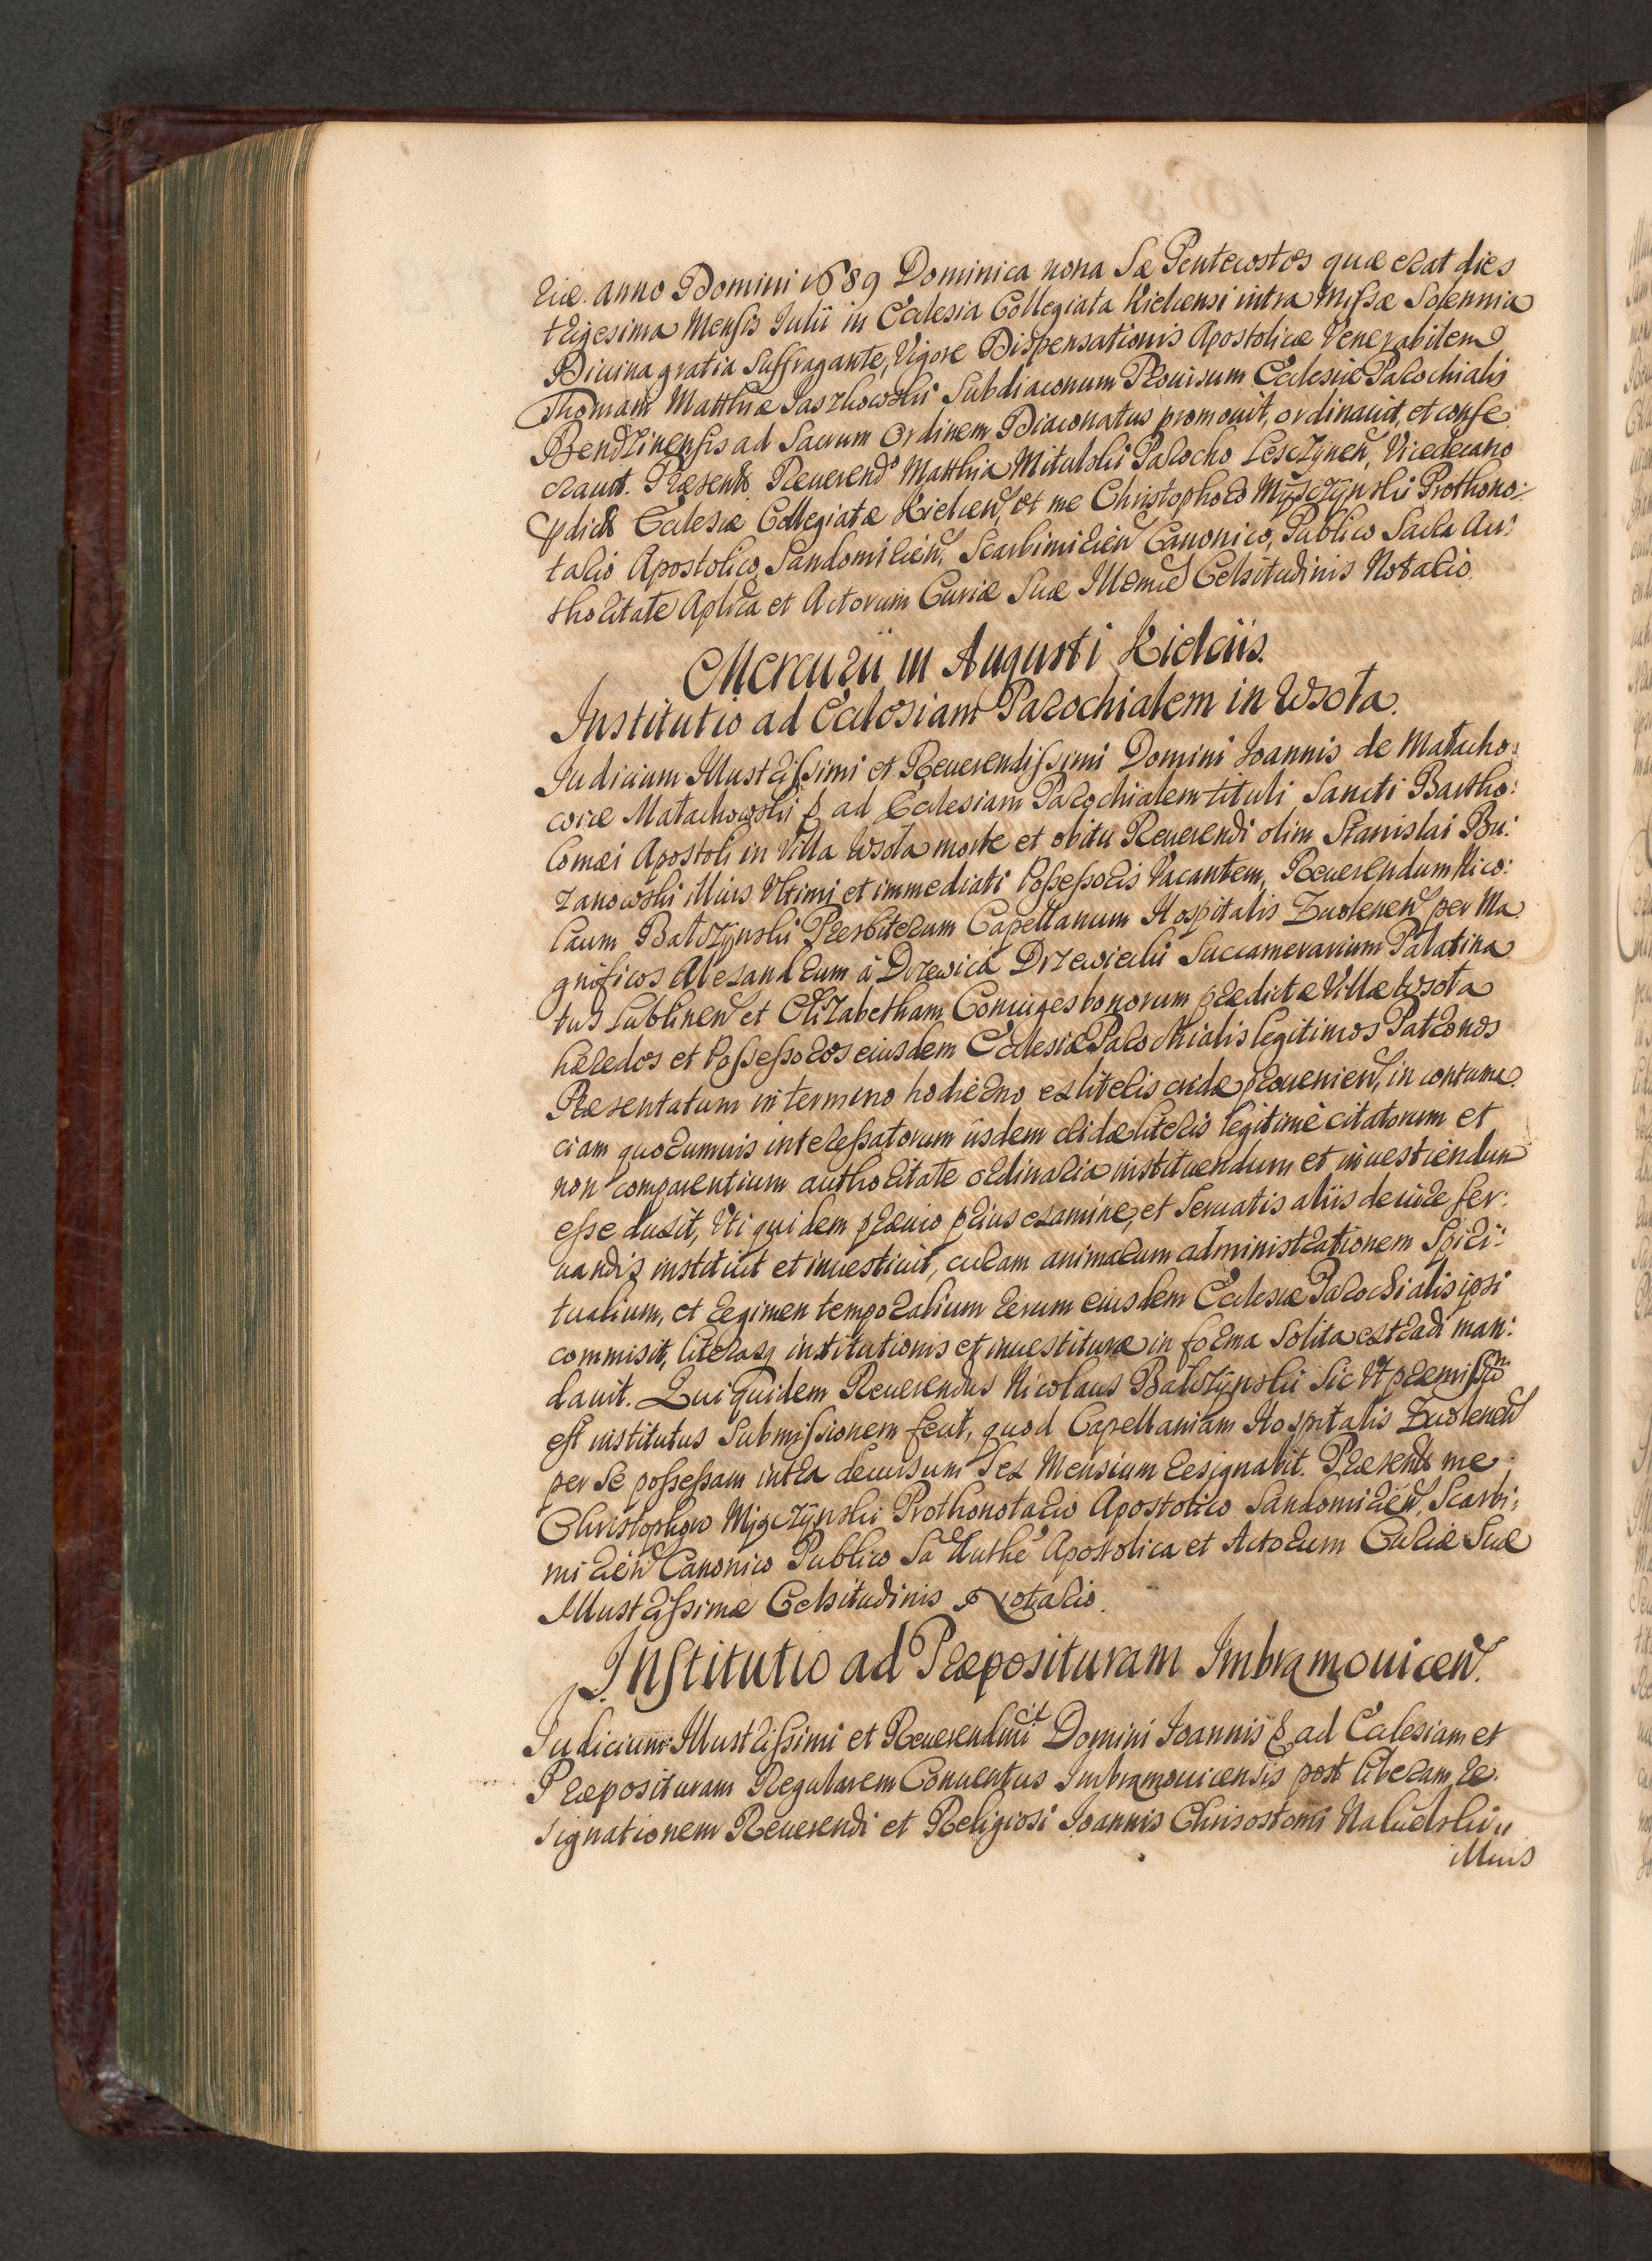 riæ. anno Domini 1689 Dominica nona Sæ Pentecostes quæ erat dies
trigesima Mensis Iulii in Ecclesia Collegiata Kielcensi intra Missæ Solennia
Diuina gratia Suffragante, Vigore Dispensationis Apostolicæ Venerabilem
Thomam Matthiæ Jaszkowski Subdiaconum Prouisum Ecclesiæ Parochialis
Bendzinensis ad Sacrum Ordinem Diaconatus promouit, ordinauit, et conse:
crauit. Præsentt. Reuerendo Matthia Mitulski Parocho Lesczynen, Vicedecano
pdictæ Ecclesiæ Collegiatæ Kielcen, et me Christophoro Myszczynski Prothono:
tario Apostolico, Sandomirien, Scarbimirien Canonico, Publico Sacra Au:
thoritate Aplica et Actorum Curiæ Suæ Illmæ Celsitudinis Notario.
Mercurii III Augusti Kielciis.
Institutio ad Ecclesiam Parochialem in Wsola.
Iudicium Illustrissimi et Reuerendissimi Domini Ioannis de Malacho:
wice Malachowski & ad Ecclesiam Parochialem tituli Sancti Bartho:
lomæi Apostoli in Villa Wsola morte et obitu Reuerendi olim Stanislai Bu:
zanowski illius Vltimi et immediati Possessoris Vacantem, Reuerendum Nico:
laum Balczynski Præsbiterum Capellanum Hospitalis Zwolenen per Ma
gnificos Alexandrum à Drzewica Drzewiecki Succamerarium Palatina
tus Lublinen et Elizabetham Coniuges bonorum prædictæ Villæ Wsola
hæredes et Possessores eiusdem Ecclesiæ Parochialis legitimos Patronos
Præsentatum in termino hodierno ex literis cridæ prouenien, in contuma
ciam quorumuis interessatorum iisdem cridæ literis legitimè citatorum et
non comparentium authoritate ordinaria instituendum et inuestiendum
esse duxit, Vti quidem præuio prius examine, et Seruatis aliis de iure ser:
uandis instituit et inuestiuit, curam animarum administrationem Spiri:
tualium, et regimen temporalium rerum eiusdem Ecclesiæ Parochialis ipsi
commisit, literasq institutionis et inuestituræ in forma Solita extradi man:
dauit. Qui quidem Reuerendus Nicolaus Balczynski Sic Vt præmissum
est institutus Submissionem fecit, quod Capellaniam Hospitalis Zwolenen
per Se possessam intra decursum Sex Mensium resignabit. Præsentt. me
Christophoro Myszczynski Prothonotario Apostolico Sandomirien, Scarbi:
mirien Canonico Publico Sa Authe Apostolica et Actorum Curiæ Suæ
Illustrissimæ Celsitudinis Notario.
Institutio ad Præposituram Imbramouicen.
Iudicium Illustrissimi et Reuerendmi Domini Ioannis & ad Ecclesiam et
Præposituram Regularem Conuentus Imbramouicensis post liberam re:
signationem Reuerendi et Religiosi Ioannis Chrisostomi
illius